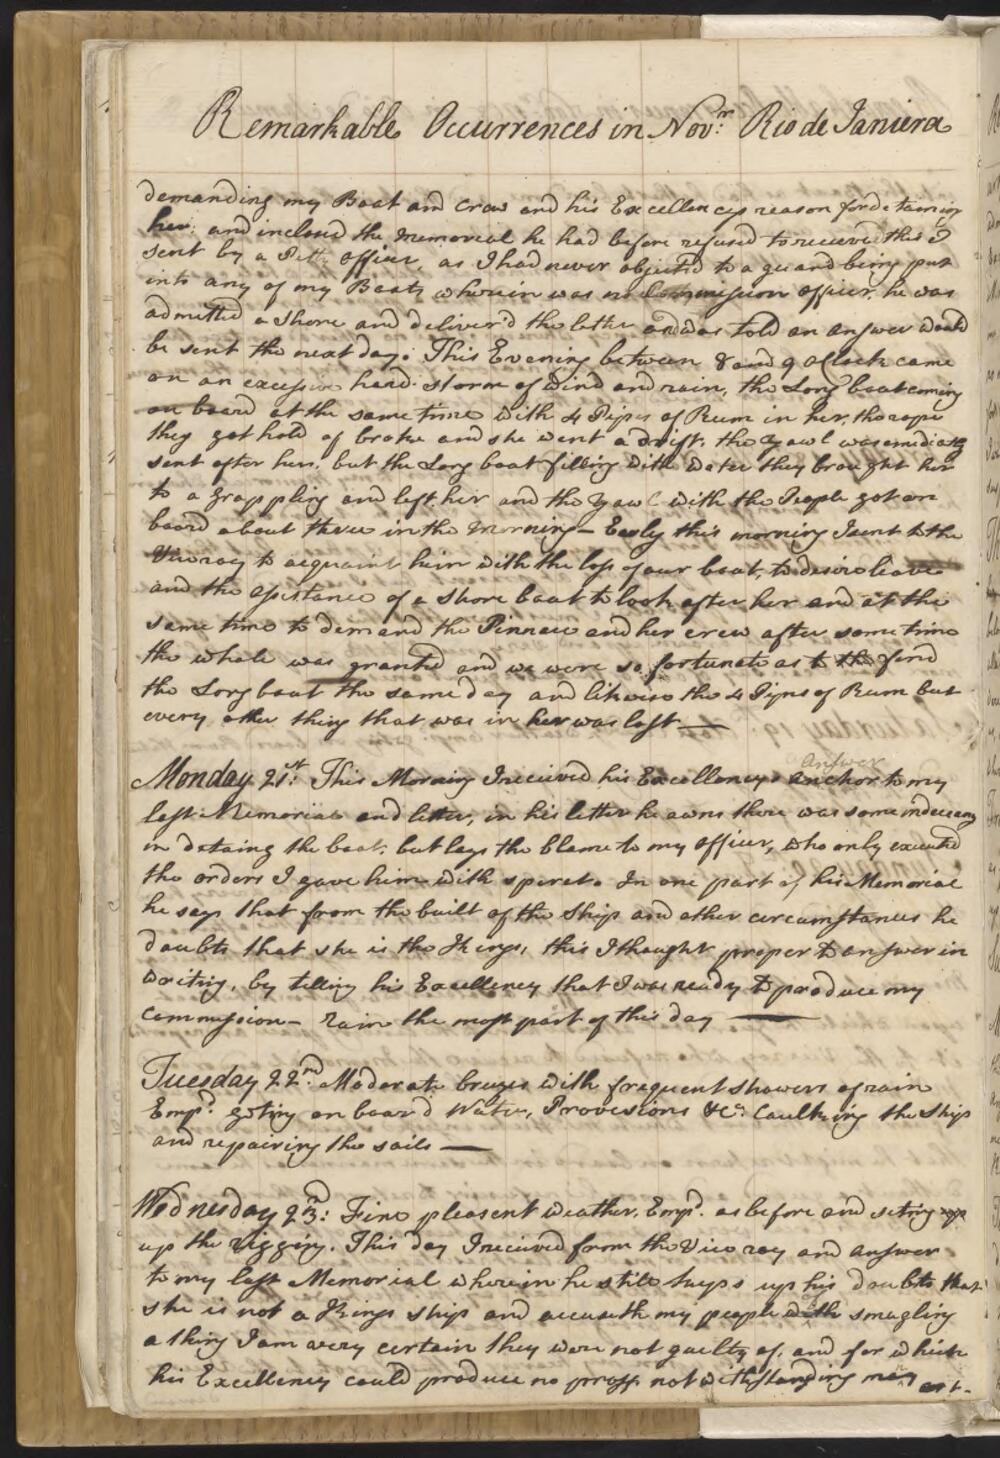 Remarkable Occurrences in Novr. Rio de Janiera
demanding my Boat and Crew and his Excellencys reason for detaining
her, and inclosed the Memorial he had before refused to receive this I
sent by a Petty officer, as I had never objected to a guard being put
into any of my Boats wherein was no Commission officer, he was
admitted a Shore and deliver'd the letter and was told an answer would
be sent the next day. This Evening between 8 and 9 oClock came
on an excessive hard storm of wind and rain, the Long boat coming
on board at the same time with 4 Pipes of Rum in her, the rope
they got hold of broke and she went a drift, the Yawl was imediatly
sent after her, but the Long boat filling with water they brought her
to a grappling and left her and the Yawl with the People got on
board about three in the Morning — Early this morning I sent to the
Viceroy to acquaint him with the loss of our boat, to desire leave
and the assistance of a Shore boat to look after her and at the
same time to demand the Pinnace and her crew after some time
the whole was granted and we were so fortunate as to find
the Long boat the same day and likewise the 4 Pipes of Rum but
every other thing that was in her was lost —
Monday 21st: This Morning I received his Excellencys Anchor Answer to my
last Memorial and letter, in his letter he owns there was some indecency
in detaing the boat, but lays the blame to my officer, who only executed
the orders I gave him with spiret. In one part of his Memorial
he says that from the built of the Ship and other circumstances he
doubts that she is the Kings, this I thought proper to answer in
writing, by telling his Excellency that I was ready to produce my
commission — rain the most part of this day —
Tuesday 22nd: Moderate breezes with frequent showers of rain
Empd. geting on board Water, Provisions &Ca. Caulking the Ship
and repairing the sails —
Wednesday 23rd: Fine pleasent weather, Empd. as before and seting up
up the rigging. This day I received from the Vice roy and answer
to my last Memorial wherein he still keeps up his doubts that
she is not a Kings ship and accuseth my people with smugling
a thing I am very certain they were not guilty of, and for which
his Excellency could produce no proff notwithstanding